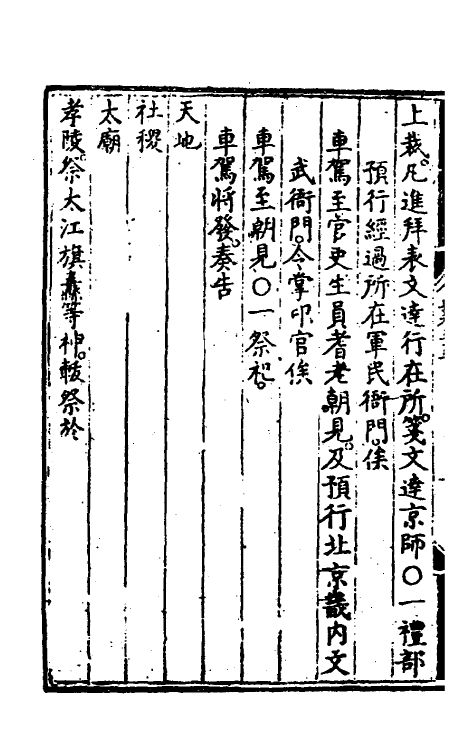 上裁凡進拜表文達行在所箋文達京師○一禮部
預行經過所在軍民衙門俟
車駕至官吏生員耆老朝見及預行北京畿內文
武衙門令掌印官俟
車駕至朝見○一祭祀
車駕將發奏告
天地
社稷
太廟
孝陵祭大江旗纛等神軷祭於